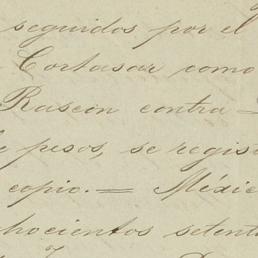 seguidos por el
Cortasar como
Rascon contra =
e pesos, se regis
copio. = Méxic
hocientos setent